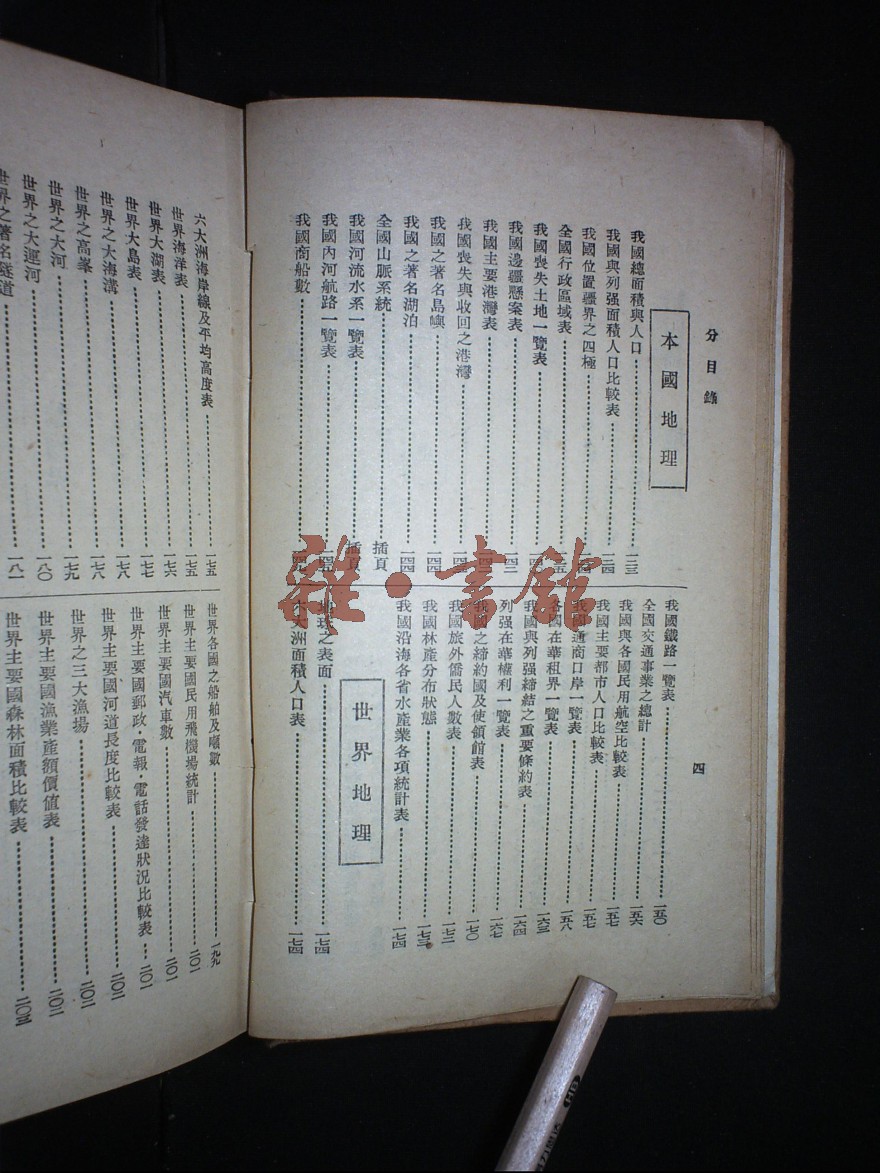 分目錄
四
本國地理
我國總面積與人口 一二三
我國與列强面積人口比較表 一二四
我國位置疆界之四極
全國行政區域表
我國喪失土地一覽表
我國邊疆懸案表
我國主要港灣表
我國喪失與收回之港灣
我國之著名島嶼 一四四
我國之著名湖泊 一四四
全國山脈系統 插頁
我國河流水系一覽表 插頁
我國內河航路一覽表
我國商船數
我國鐵路一覽表 一五〇
全國交通事業之總計 一五六
我國與各國民用航空比較表 一五七
我國主要都市人口比較表 一五七
我國通商口岸一覽表 一五八
各國在華租界一覽表 一六三
我國與列强締結之重要條約表 一六四
列强在華權利一覽表 一六七
我國之締約國及使領館表 一七〇
我國旅外僑民人數表 一七二
我國林產分布狀態 一七三
我國沿海各省水產業各項統計表 一七四
世界地理
地球之表面 一七四
六大洲面積人口表 一七四
六大洲海岸線及平均高度表 一七五
世界海洋表 一七五
世界大湖表 一七六
世界大島表 一七七
世界之大海溝 一七八
世界之高峯 一七八
世界之大河 一七九
世界之大運河 一八〇
世界之著名隧道 一八一
世界各國之船舶及噸數 一九九
世界主要國民用飛機場統計 二〇一
世界主要國汽車數 二〇一
世界主要國郵政·電報·電話發達狀況比較表 二〇一
世界主要國河道長度比較表 二〇二
世界之三大漁場 二〇二
世界主要國漁業產額價值表 二〇二
世界主要國森林面積比較表 二〇三
雜·書館